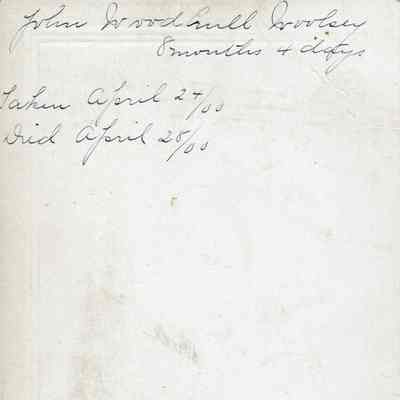 John Woodhull Woolsey
8 months 4 days
Taken April 24/00
Died April 28/00